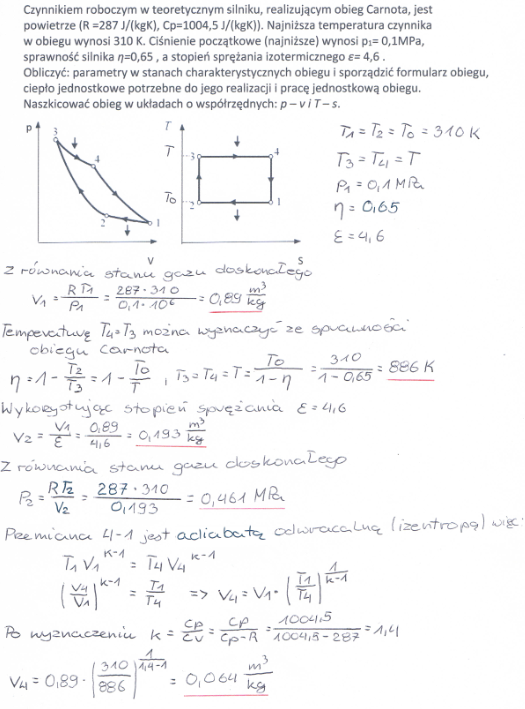 Czynnikiem roboczym w teoretycznym silniku, realizującym obieg Carnota, jest
powietrze (R =287 J/(kgK), Cp=1004,5 J/(kgK)). Najniższa temperatura czynnika
w obiegu wynosi 310 K. Ciśnienie początkowe (najniższe) wynosi p₁= 0,1MPa,
sprawność silnika η=0,65 , a stopień sprężania izotermicznego ε= 4,6 .
Obliczyć: parametry w stanach charakterystycznych obiegu i sporządzić formularz obiegu,
ciepło jednostkowe potrzebne do jego realizacji i pracę jednostkową obiegu.
Naszkicować obieg w układach o współrzędnych: p – v i T – s.
p 3 4 2 1 V
T T T₀ 3 4 2 1 S
T₁ = T₂ = T₀ = 310 K
T₃ = T₄ = T
P₁ = 0,1 MPa
η = 0,65
ε = 4,6
Z równania stanu gazu doskonałego
V₁ = RT₁/P₁ = 287·310/0,1·10⁶ = 0,89 m³/kg
Temperaturę T₄=T₃ można wyznaczyć ze sprawności
obiegu Carnota
η = 1 - T₂/T₃ = 1 - T₀/T , T₃ = T₄ = T = T₀/1-η = 310/1-0,65 = 886 K
Wykorzystując stopień sprężania ε = 4,6
V₂ = V₁/ε = 0,89/4,6 = 0,193 m³/kg
Z równania stanu gazu doskonałego
P₂ = RT₂/V₂ = 287·310/0,193 = 0,461 MPa
Przemiana 4-1 jest adiabatą odwracalną (izentropą) więc:
T₁V₁^(K-1) = T₄V₄^(K-1)
(V₄/V₁)^(K-1) = T₁/T₄ => V₄ = V₁·(T₁/T₄)^(1/(K-1))
Po wyznaczeniu K = Cp/Cv = Cp/Cp-R = 1004,5/1004,5-287 = 1,4
V₄ = 0,89·(310/886)^(1/(1,4-1)) = 0,064 m³/kg